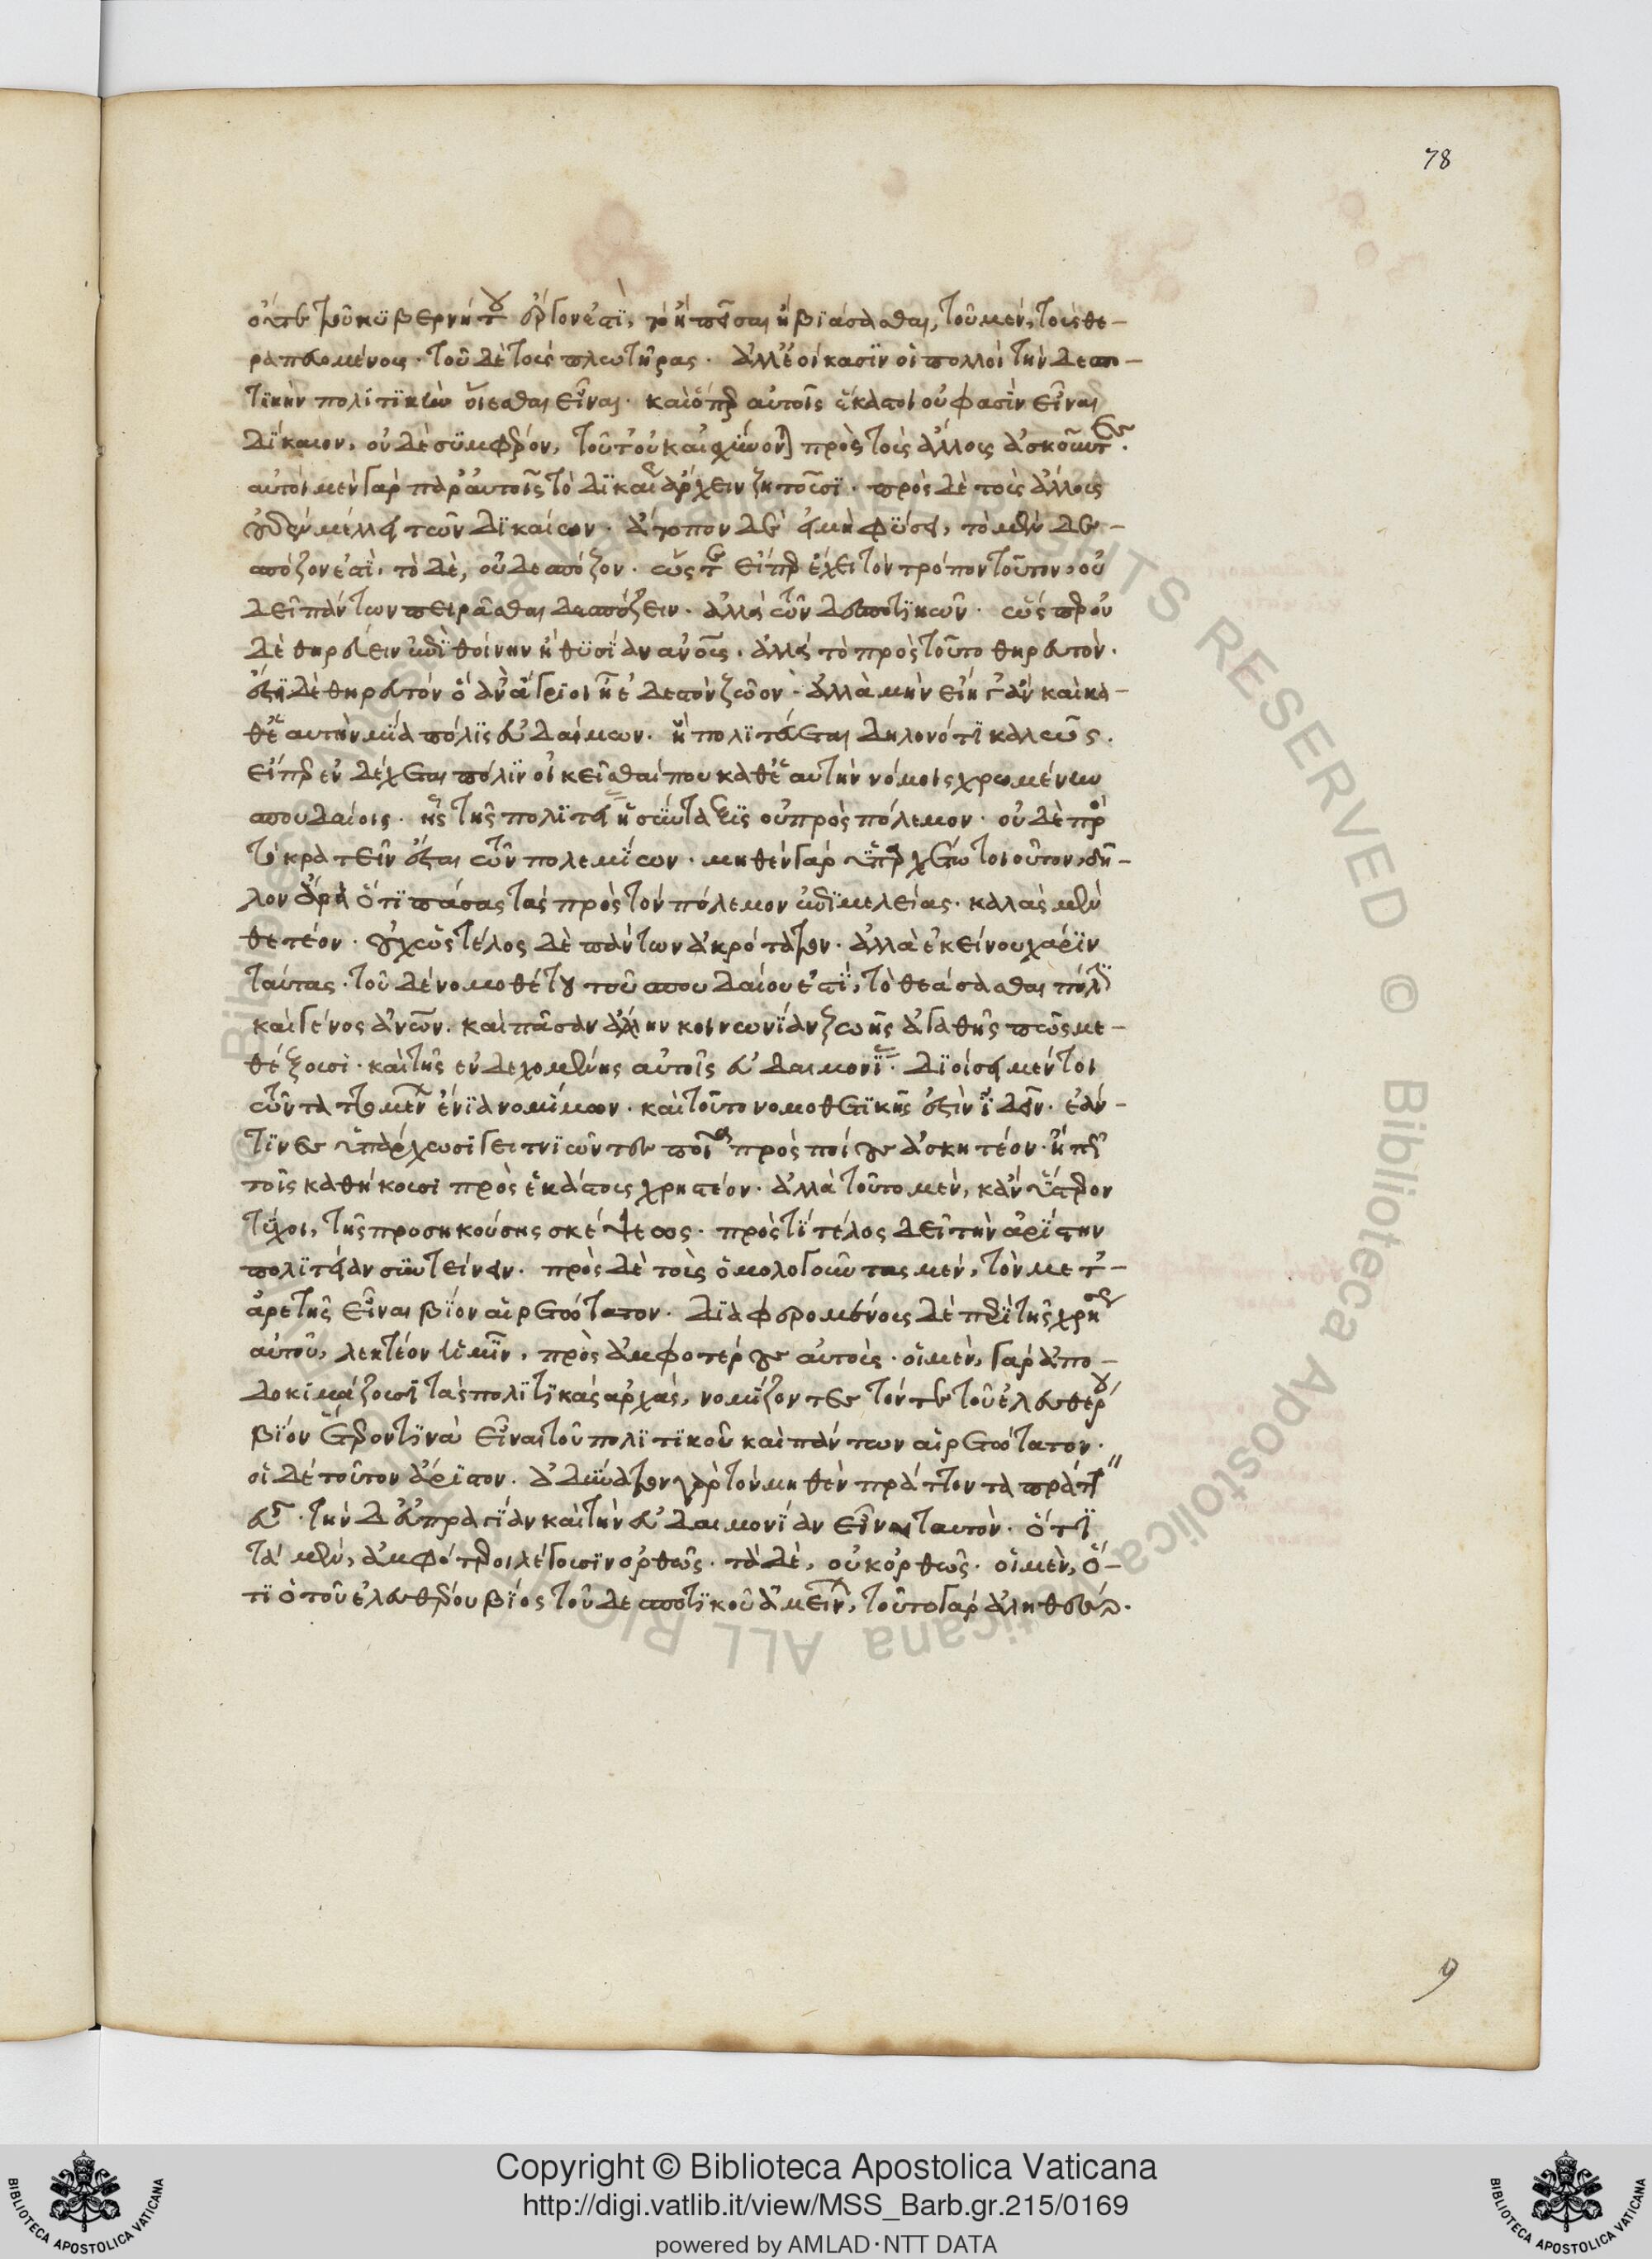 78
οὔτε τοῦ κυβερνήτου ἔργον ἐστὶ, τὸ ἢ πεῖσαι ἢ βιάσασθαι, τοῦ μὲν, τοὺς θε-
ραπευομένους. τοῦ δὲ τοὺς πλωτῆρας. ἀλλ' ἐοίκασιν οἱ πολλοὶ τὴν δεσπο-
τικὴν πολιτικὴν οἴεσθαι εἶναι. καὶ ὅπερ αὐτοῖς ἕκαστοι οὔ φασιν εἶναι
δίκαιον, οὐδὲ συμφέρον, τοῦτ' οὐκ αἰσχύνονται πρὸς τοὺς ἄλλους ἀσκοῦντες.
αὐτοὶ μὲν γὰρ παρ' αὑτοῖς τὸ δικαίως ἄρχειν ζητοῦσι. πρὸς δὲ τοὺς ἄλλους
οὐδὲν μέλει τῶν δικαίων. ἄτοπον δὲ εἰ μὴ φύσει, τὸ μὲν δε-
σπόζον ἐστὶ, τὸ δὲ, οὐ δεσπόζον. ὥστε εἴπερ ἔχει τὸν τρόπον τοῦτον, οὐ
δεῖ πάντων πειρᾶσθαι δεσπόζειν. ἀλλὰ τῶν δεσποτικῶν. ὥσπερ οὐ
δὲ θηρεύειν ἐπὶ θοίνην ἢ θυσίαν ἀνθρώπους. ἀλλὰ τὸ πρὸς τοῦτο θηρευτόν.
ἔστι δὲ θηρευτὸν ὃ ἂν ἄγριον ᾖ ἐδεστὸν ζῷον. ἀλλὰ μὴν εἴη γ' ἂν καὶ κα-
θ' ἑαυτὴν μία πόλις εὐδαίμων. ἣ πολιτεύεται δηλονότι καλῶς.
εἴπερ ἐνδέχεται πόλιν οἰκεῖσθαί που καθ' ἑαυτὴν νόμοις χρωμένην
σπουδαίοις. ἧς τῆς πολιτείας ἡ σύνταξις οὐ πρὸς πόλεμον. οὐδὲ πρὸς
τὸ κρατεῖν ἔσται τῶν πολεμίων. μηθὲν γὰρ ὑπαρχέτω τοιοῦτον, δῆ-
λον ἄρα ὅτι πάσας τὰς πρὸς τὸν πόλεμον ἐπιμελείας. καλὰς μὲν
θετέον. οὐχ ὡς τέλος δὲ πάντων ἀκρότατον. ἀλλὰ ἐκείνου χάριν
ταύτας. τοῦ δὲ νομοθέτου τοῦ σπουδαίου ἐστὶ, τὸ θεάσασθαι πόλιν
καὶ γένος ἀνθρώπων. καὶ πᾶσαν ἄλλην κοινωνίαν ζωῆς ἀγαθῆς πῶς με-
θέξουσι. καὶ τῆς ἐνδεχομένης αὐτοῖς εὐδαιμονίας. διοίσει μέντοι
τῶν ταττομένων ἔνια νομίμων. καὶ τοῦτο νομοθετικῆς ἔστιν ἰδεῖν. ἐάν
τινες ὑπάρχωσι γειτνιῶντες ποῖα πρὸς ποίους ἀσκητέον. ἢ πῶς
τοῖς καθήκουσι πρὸς ἑκάστους χρηστέον. ἀλλὰ τοῦτο μὲν, κἂν ὕστερον
τύχοι, τῆς προσηκούσης σκέψεως. πρὸς τί τέλος δεῖ τὴν ἀρίστην
πολιτείαν συντείνειν. πρὸς δὲ τοὺς ὁμολογοῦντας μὲν, τὸν μετ'
ἀρετῆς εἶναι βίον αἱρετώτατον. διαφερομένους δὲ περὶ τῆς χρήσεως
αὐτοῦ, λεκτέον ἡμῖν, πρὸς ἀμφοτέρους αὐτούς. οἱ μὲν, γὰρ ἀπο-
δοκιμάζουσι τὰς πολιτικὰς ἀρχάς, νομίζοντες τόν τε τοῦ ἐλευθέρου
βίον ἕτερόν τινα εἶναι τοῦ πολιτικοῦ καὶ πάντων αἱρετώτατον.
οἱ δὲ τοῦτον ἄριστον. ἀδύνατον γὰρ τὸν μηθὲν πράττοντα πράττειν
εὖ. τὴν δ' εὐπραγίαν καὶ τὴν εὐδαιμονίαν εἶναι ταυτόν. ὅτι
τὰ μὲν, ἀμφότεροι λέγουσιν ὀρθῶς. τὰ δὲ, οὐκ ὀρθῶς. οἱ μὲν, ὅ-
τι ὁ τοῦ ἐλευθέρου βίος τοῦ δεσποτικοῦ ἀμείνων, τοῦτο γὰρ ἀληθές.
9
Copyright © Biblioteca Apostolica Vaticana
http://digi.vatlib.it/view/MSS_Barb.gr.215/0169
powered by AMLAD·NTT DATA
BIBLIOTECA APOSTOLICA VATICANA
BIBLIOTECA APOSTOLICA VATICANA